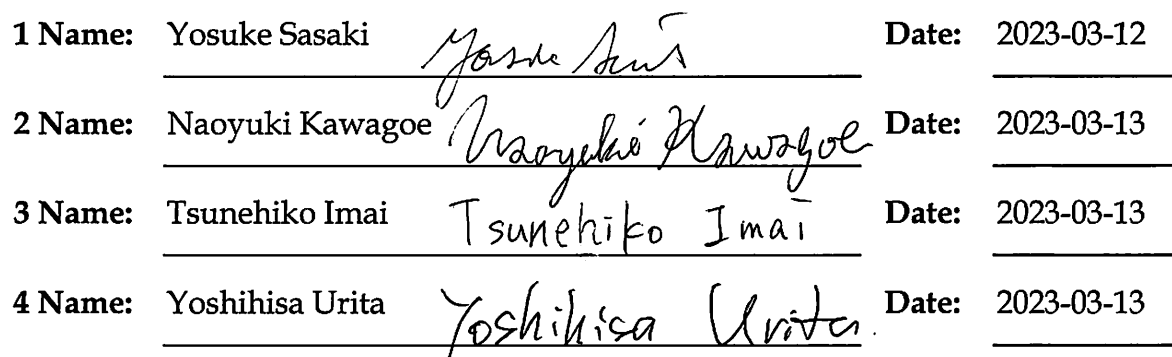 1 Name: Yosuke Sasaki Date: 2023-03-12
2 Name: Naoyuki Kawagoe Naoyuki Kawagoe Date: 2023-03-13
3 Name: Tsunehiko Imai Tsunehiko Imai Date: 2023-03-13
4 Name: Yoshihisa Urita Yoshihisa Urita Date: 2023-03-13